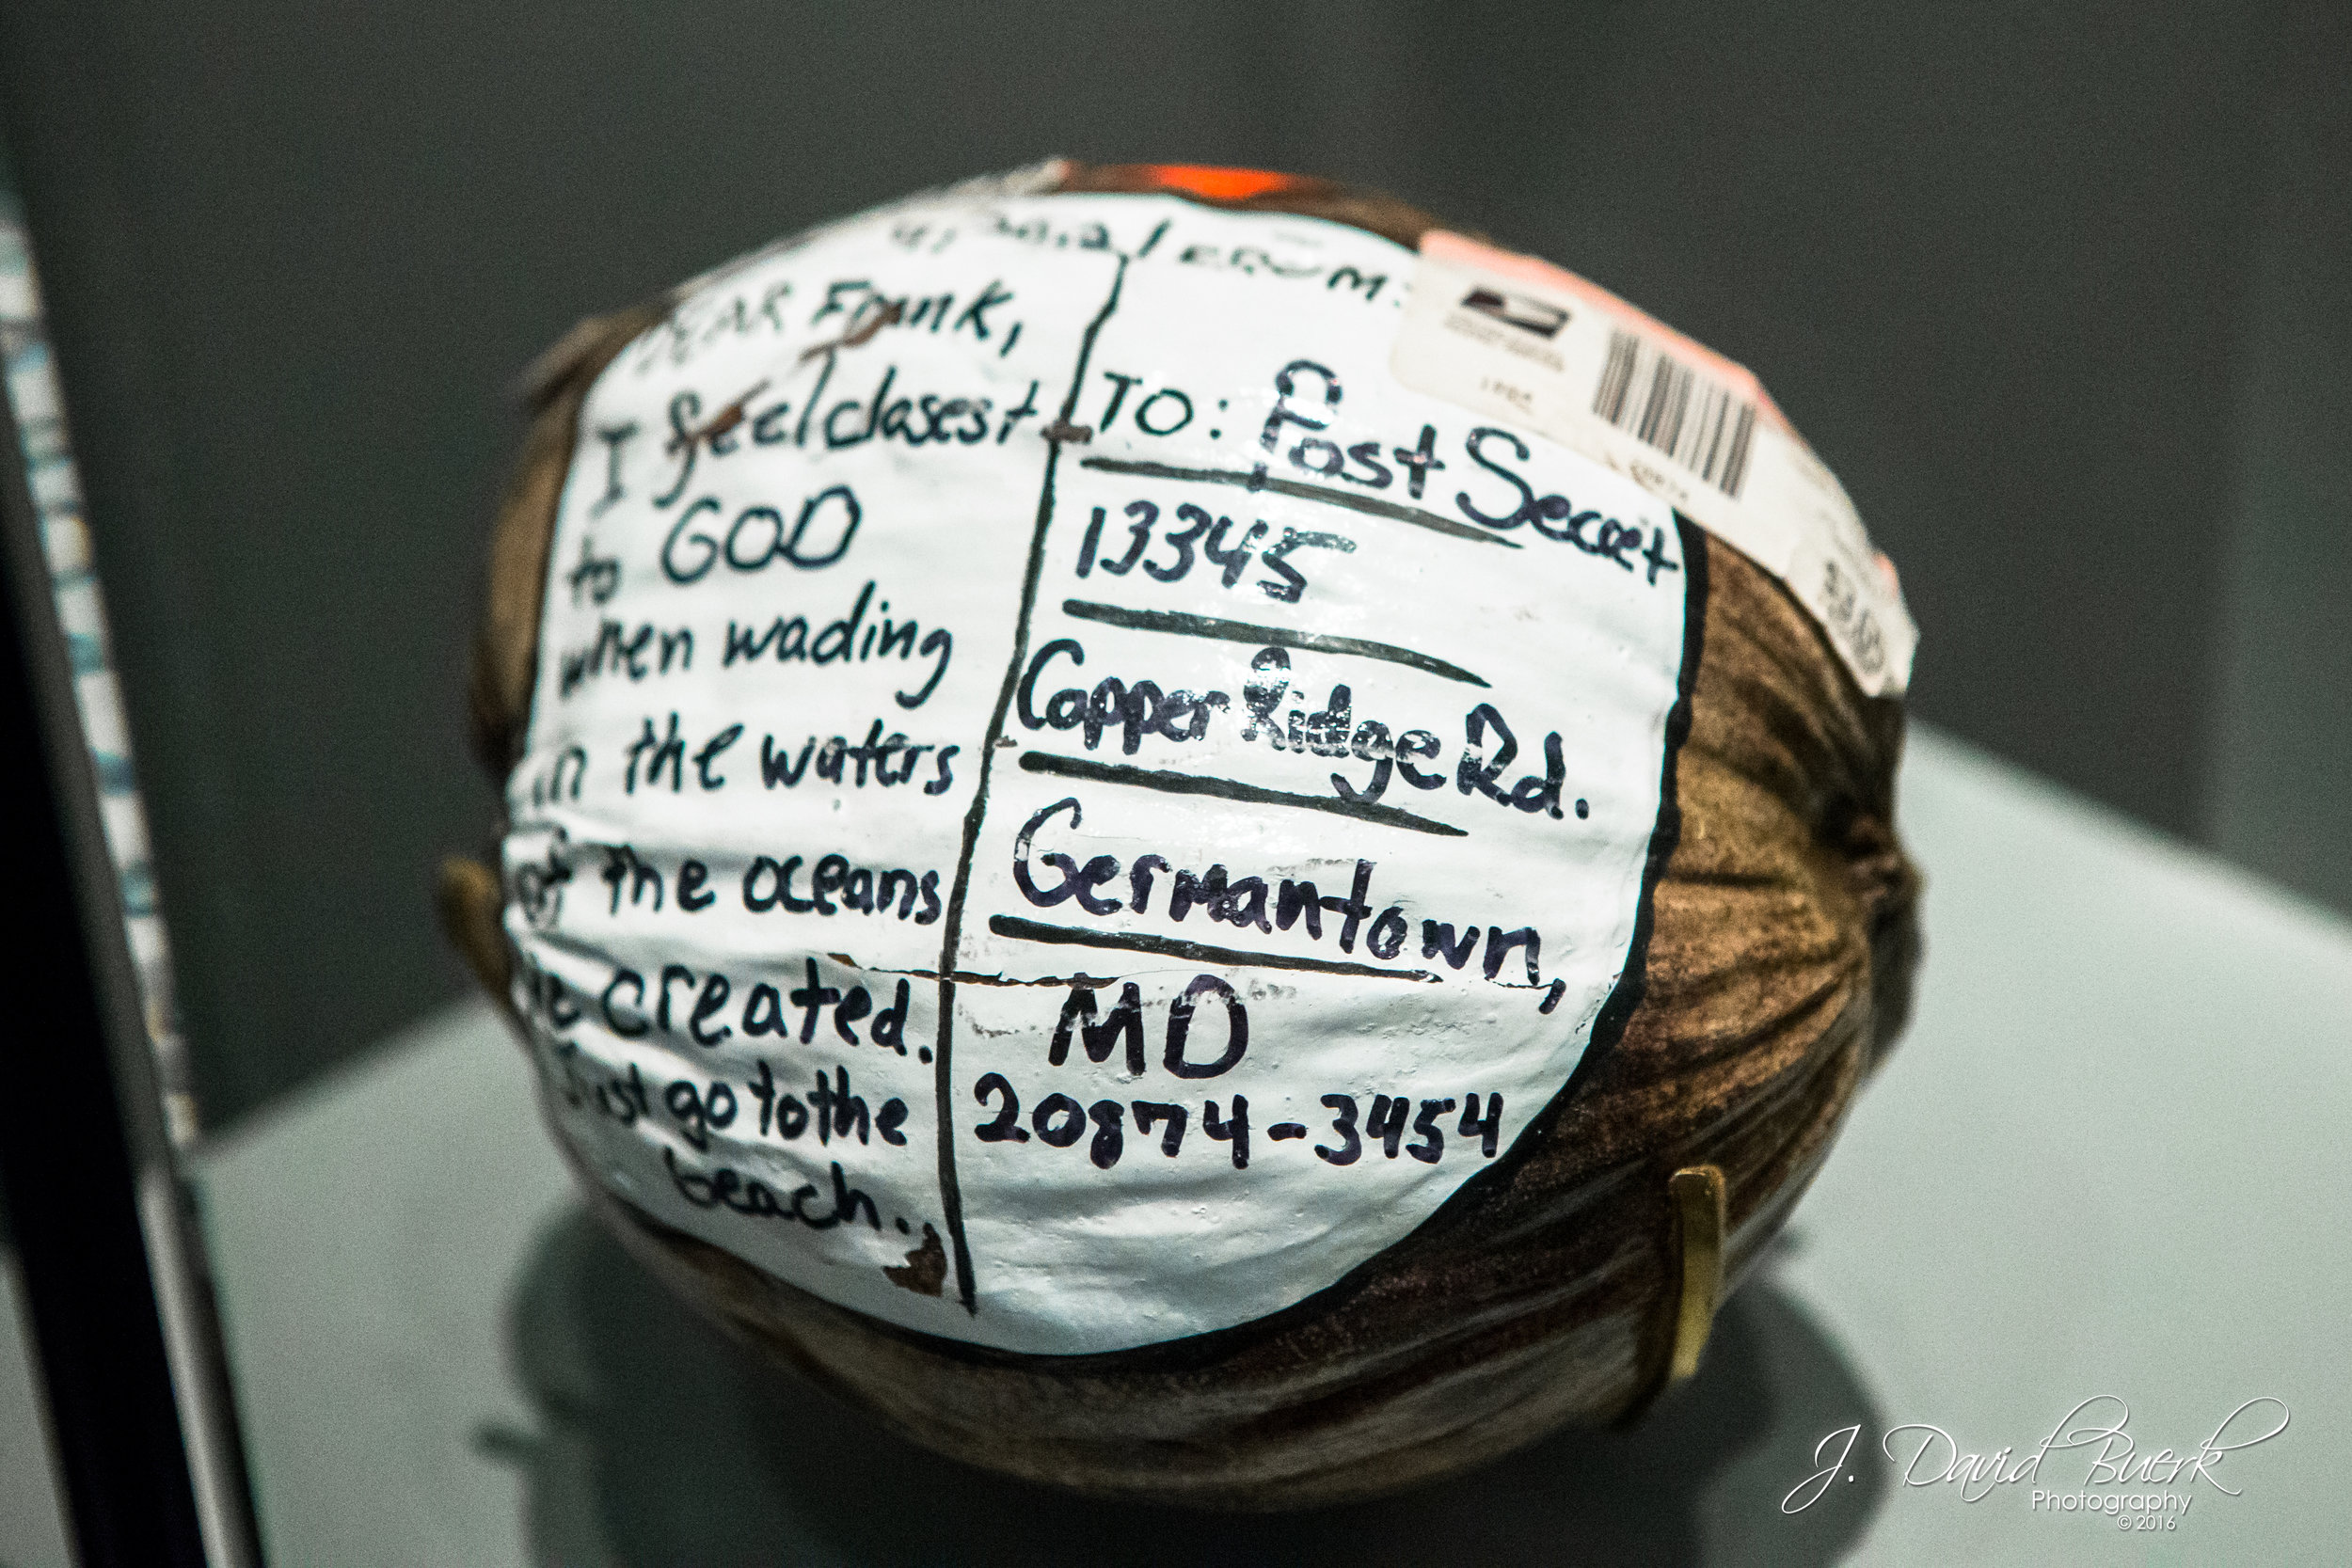 FROM:
DEAR Frank,
I feel closest
to GOD
when wading
in the waters
of the oceans
he created.
Just go to the
beach.
TO: Post Secret
13345
Copper Ridge Rd.
Germantown,
MD
20874-3454
J. David Buerk
Photography
© 2016